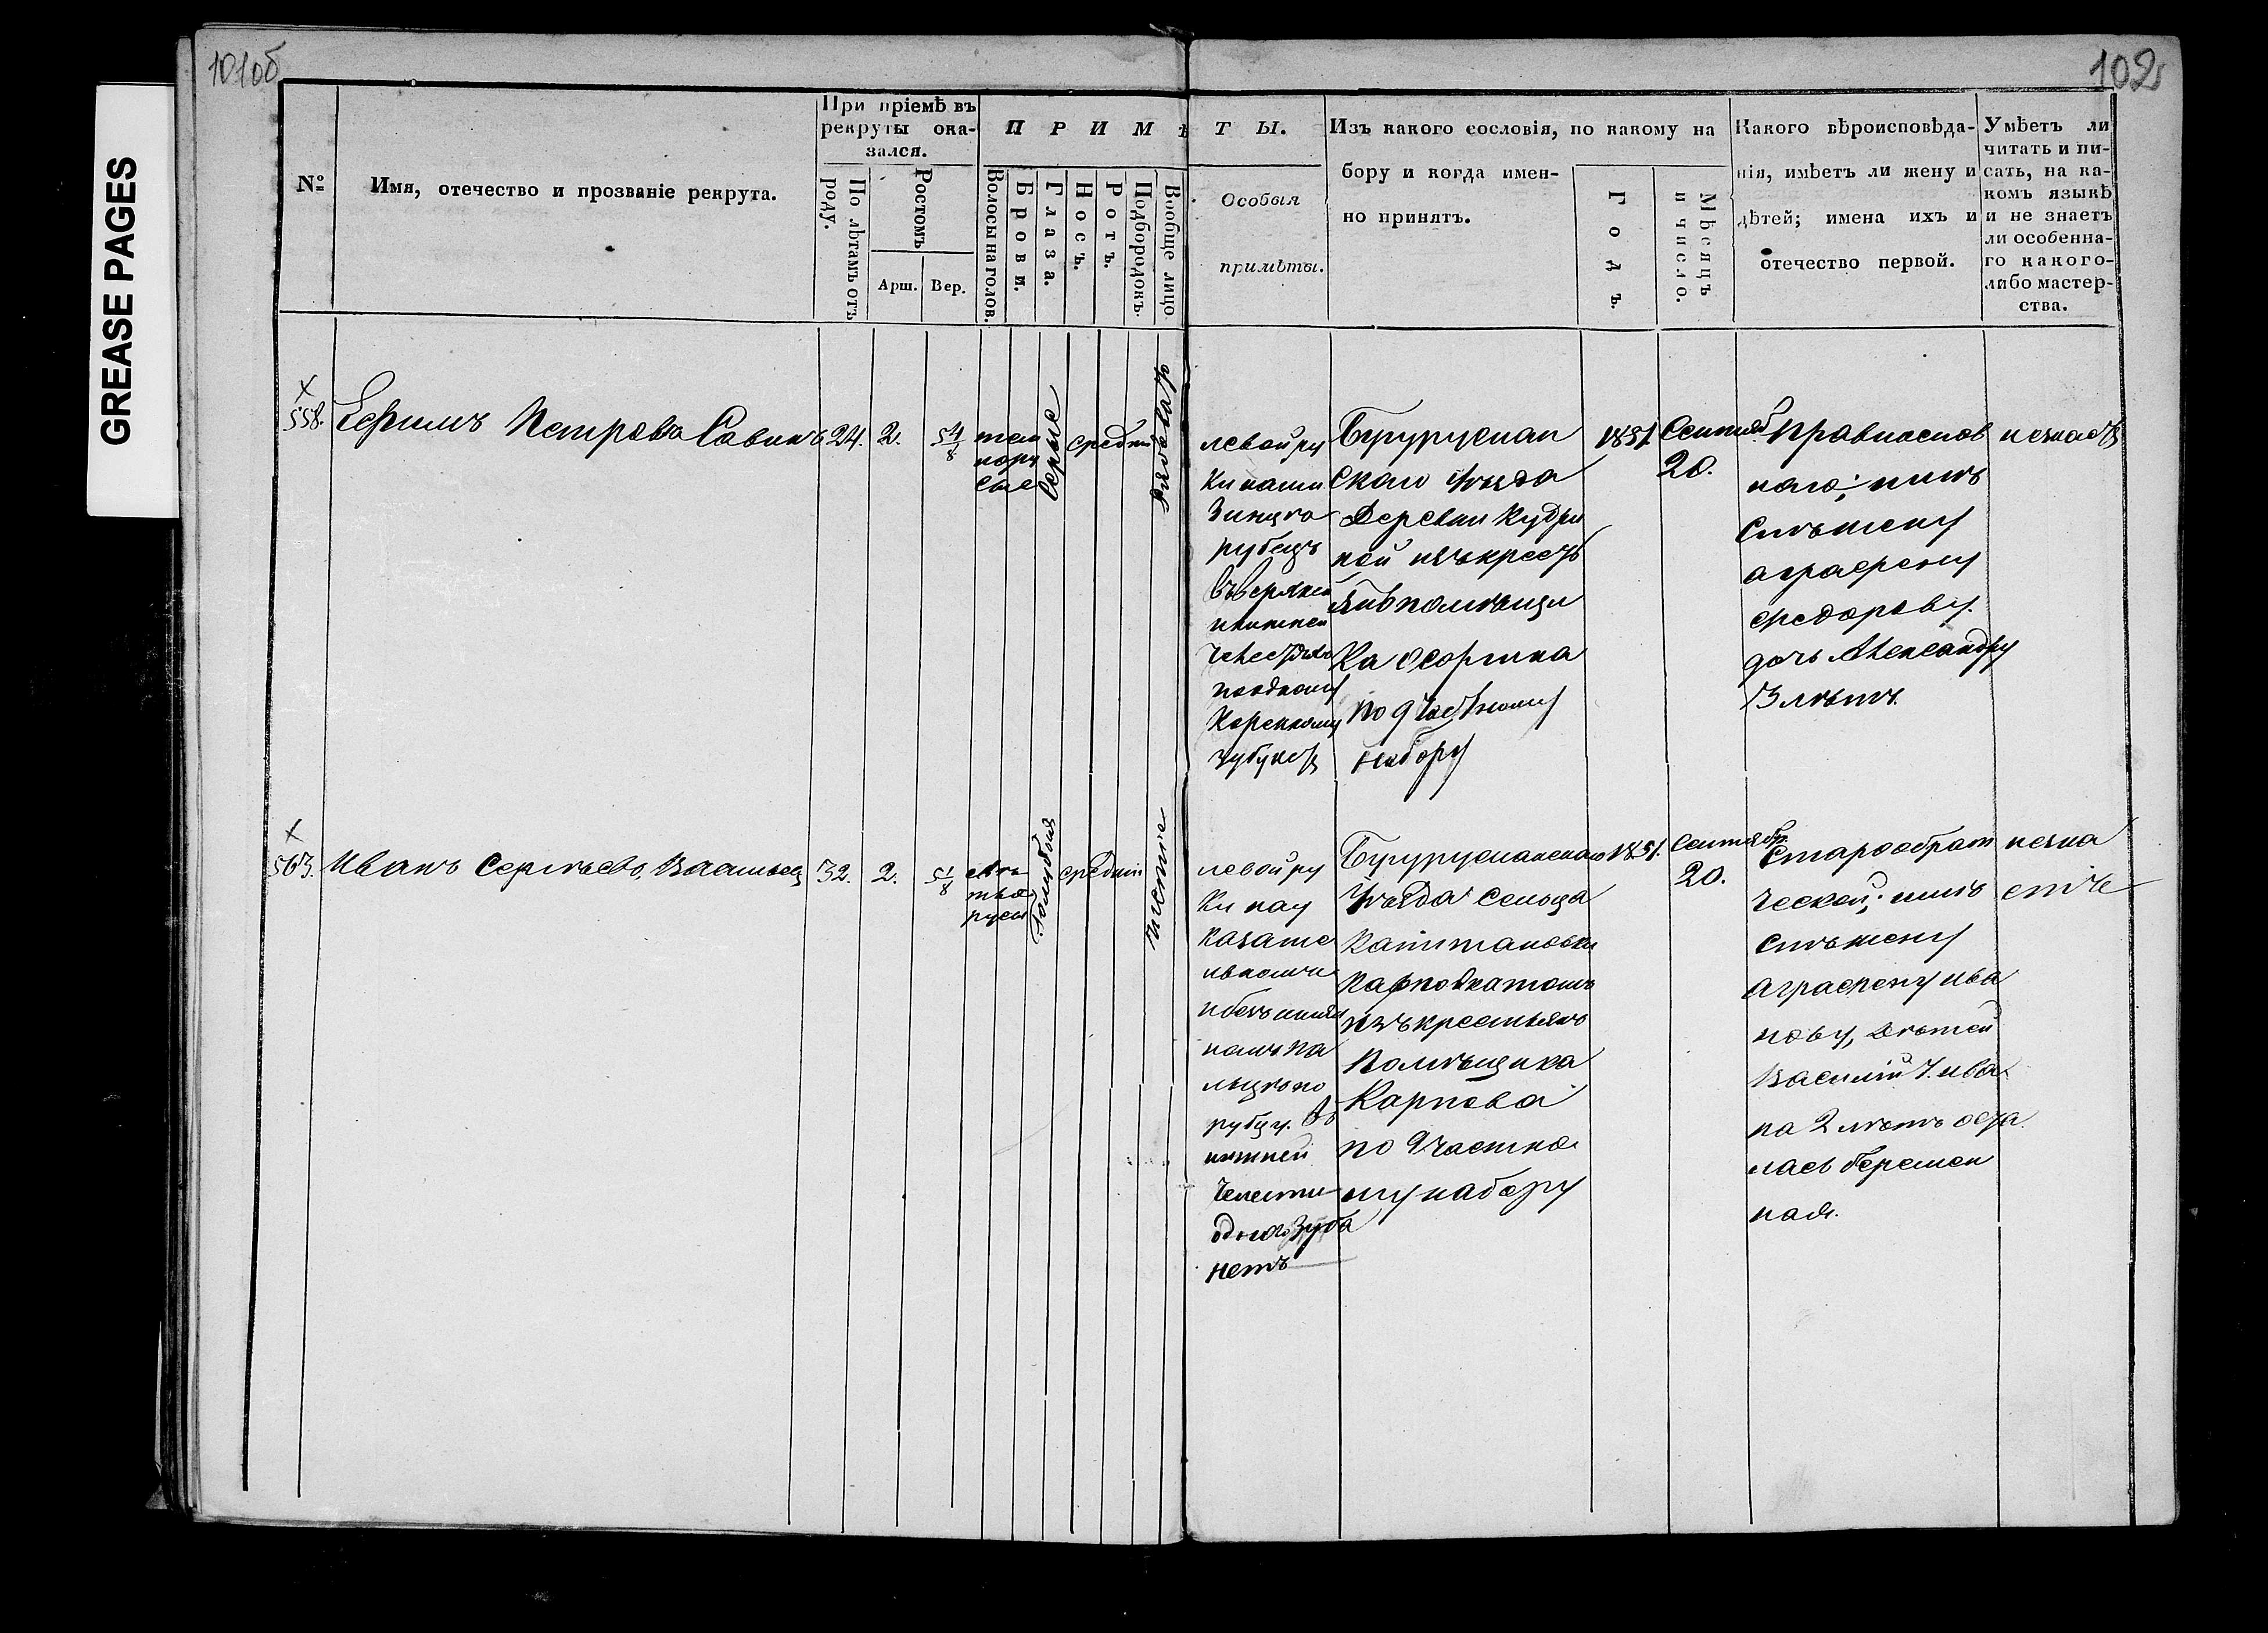 GREASE PAGES
101об
102
№
Имя, отечество и прозваніе рекрута.
При пріемѣ въ
рекруты ока-
зался.
По лѣтамъ отъ
роду.
Ростомъ
Арш.
Вер.
ПРИМѢТЫ.
Волосы на голов.
Брови.
Глаза.
Носъ.
Ротъ.
Подбородокъ.
Вообще лицо
Особыя
примѣты.
Изъ какого сословія, по какому на
бору и когда имен-
но принятъ.
Годъ.
Мѣсяцъ
и число.
Какого вѣроисповѣда-
нія, имѣетъ ли жену и
дѣтей; имена ихъ и
отечество первой.
Умѣетъ ли
читать и пи-
сать, на ка-
комъ языкѣ
и не знаетъ
ли особенна-
го какого-
либо мастер-
ства.
558.
Ефимъ Петровъ Савинъ
24.
2.
5 4/8
тем
нору
сые
Серые
средній
рябоват
левой ру
ки на ми
зинце
рубецъ
въ верхней
и нижней
челюстяхъ
по одному
коренному
зубу нетъ
Бугуруслан
скаго уѣзда
деревни Кудри
ной изъ крест
янъ помѣщи
ка Осоргина
по 9 частному
набору
1851
Сентяб
20.
Православ
наго; имѣ
етъ жену
аграфену
федорову.
дочь Александру
3 лѣтъ.
незнаетъ
563.
Иванъ Сергѣевъ Васильев
32.
2.
5 1/8
свѣ
тло
русы
Голубыя
средній
чистое
левой ру
ки на у
казате
льномъ
и безымян
номъ па
льце по
рубцу. Въ
нижней
челюсти
одного зуба
нетъ
Бугурусланскаго
уѣзда сельца
Капитановки
Карповка томъ
изъ крестьянъ
помѣщика
Карпова
по 9 частно
му набору
1851.
Сентября
20.
Старообряд
ческой; имѣ
етъ жену
аграфену ива
нову, детей
Василій 7. ива
на 2 лѣтъ оста
лась беремен
ная.
незна
етъ